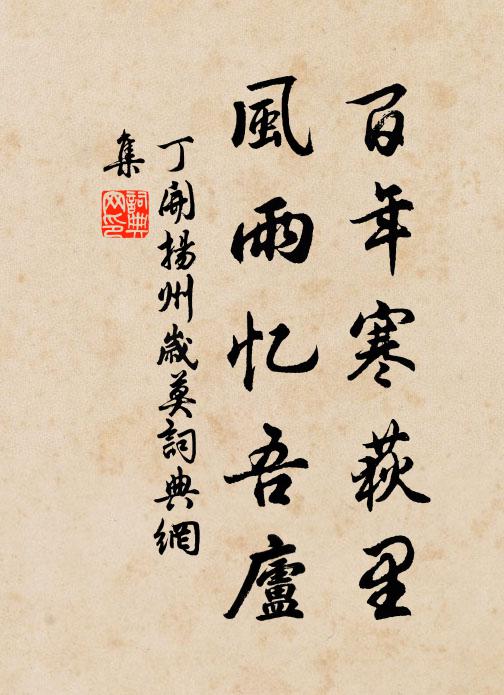 百年寒萩里
風雨忆吾廬
丁開揚州歲莫詞典網
集
詞典
网印